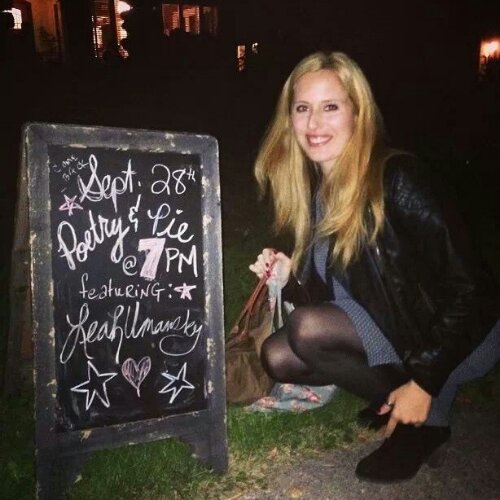 Sept. 28th
Poetry & Pie
@ 7PM
featuring:
Leah Umansky